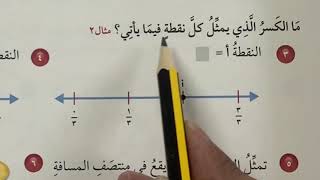 مَا الكَسرُ الَّذِي يمثِّلُ كلَّ نقطةٍ فيمَا يأتِي؟ مثال٢
٣ النقطةُ أ = ٤
أ
٠/٣ ١/٣ ٣/٣
٥ تمثِّلُ يقعُ في منتصَفِ المسافةِ ٦